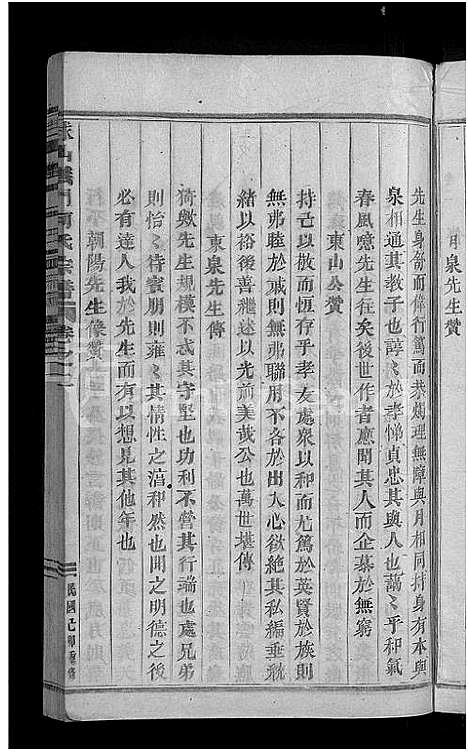 月泉先生贊
先生身舒而偉行篤而恭燭理無障與月相同持身有本與
泉相通其教子也諄〻於孝悌貞忠其與人也藹〻乎和氣
春風噫先生往矣後世作者應聞其人而企慕於無窮
東山公贊
持己以敬而恒存乎孝友處衆以和而尤篤於英賢於族則
無弗睦於戚則無弗聯用不吝於出入心欲絶其私編垂統
緒以裕後善繼述以光前美哉公也萬世堪傳
東泉先生傳
猗歟先生規模不忒其守堅也功利不營其行端也處兄弟
則怡〻待賓朋則雍〻其情性之溍和然也聞之明德之後
必有達人我於先生而有以想見其他年也
朝陽先生像贊
山義門 氏宗譜 卷之二
民國己卯重修